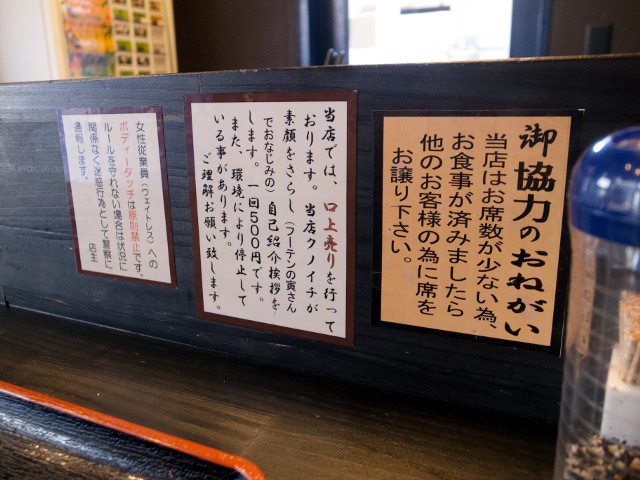 御協力のおねがい
当店はお席数が少ない為、
お食事が済みましたら
他のお客様の為に席を
お譲り下さい。
当店では、口上売りを行って
おります。当店クノイチが
素顔をさらし（フーテンの寅さん
でおなじみの）自己紹介挨拶を
します。一回500円です。
また、環境により停止して
いる事があります。
ご理解お願い致します。
女性従業員（ウェイトレス）への
ボディータッチは原則禁止です。
ルールを守れない場合は状況に
関係なく迷惑行為として警察に
通報します。
店主